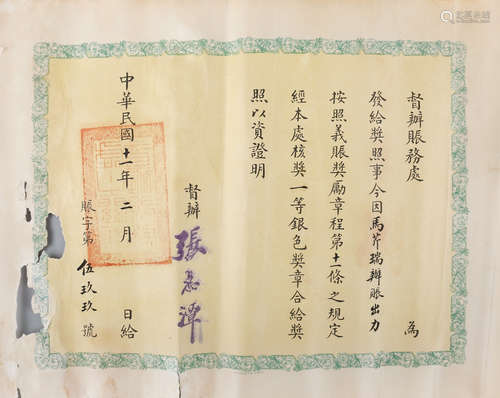 督辦賑務處 為
發給獎照事今因馬芹瑞辦賑出力
按照義賑獎勵章程第十一條之規定
經本處核獎一等銀色獎章合給獎
照以資證明
督辦
張志潭
中華民國十一年二月 日給
賑字第伍玖玖號